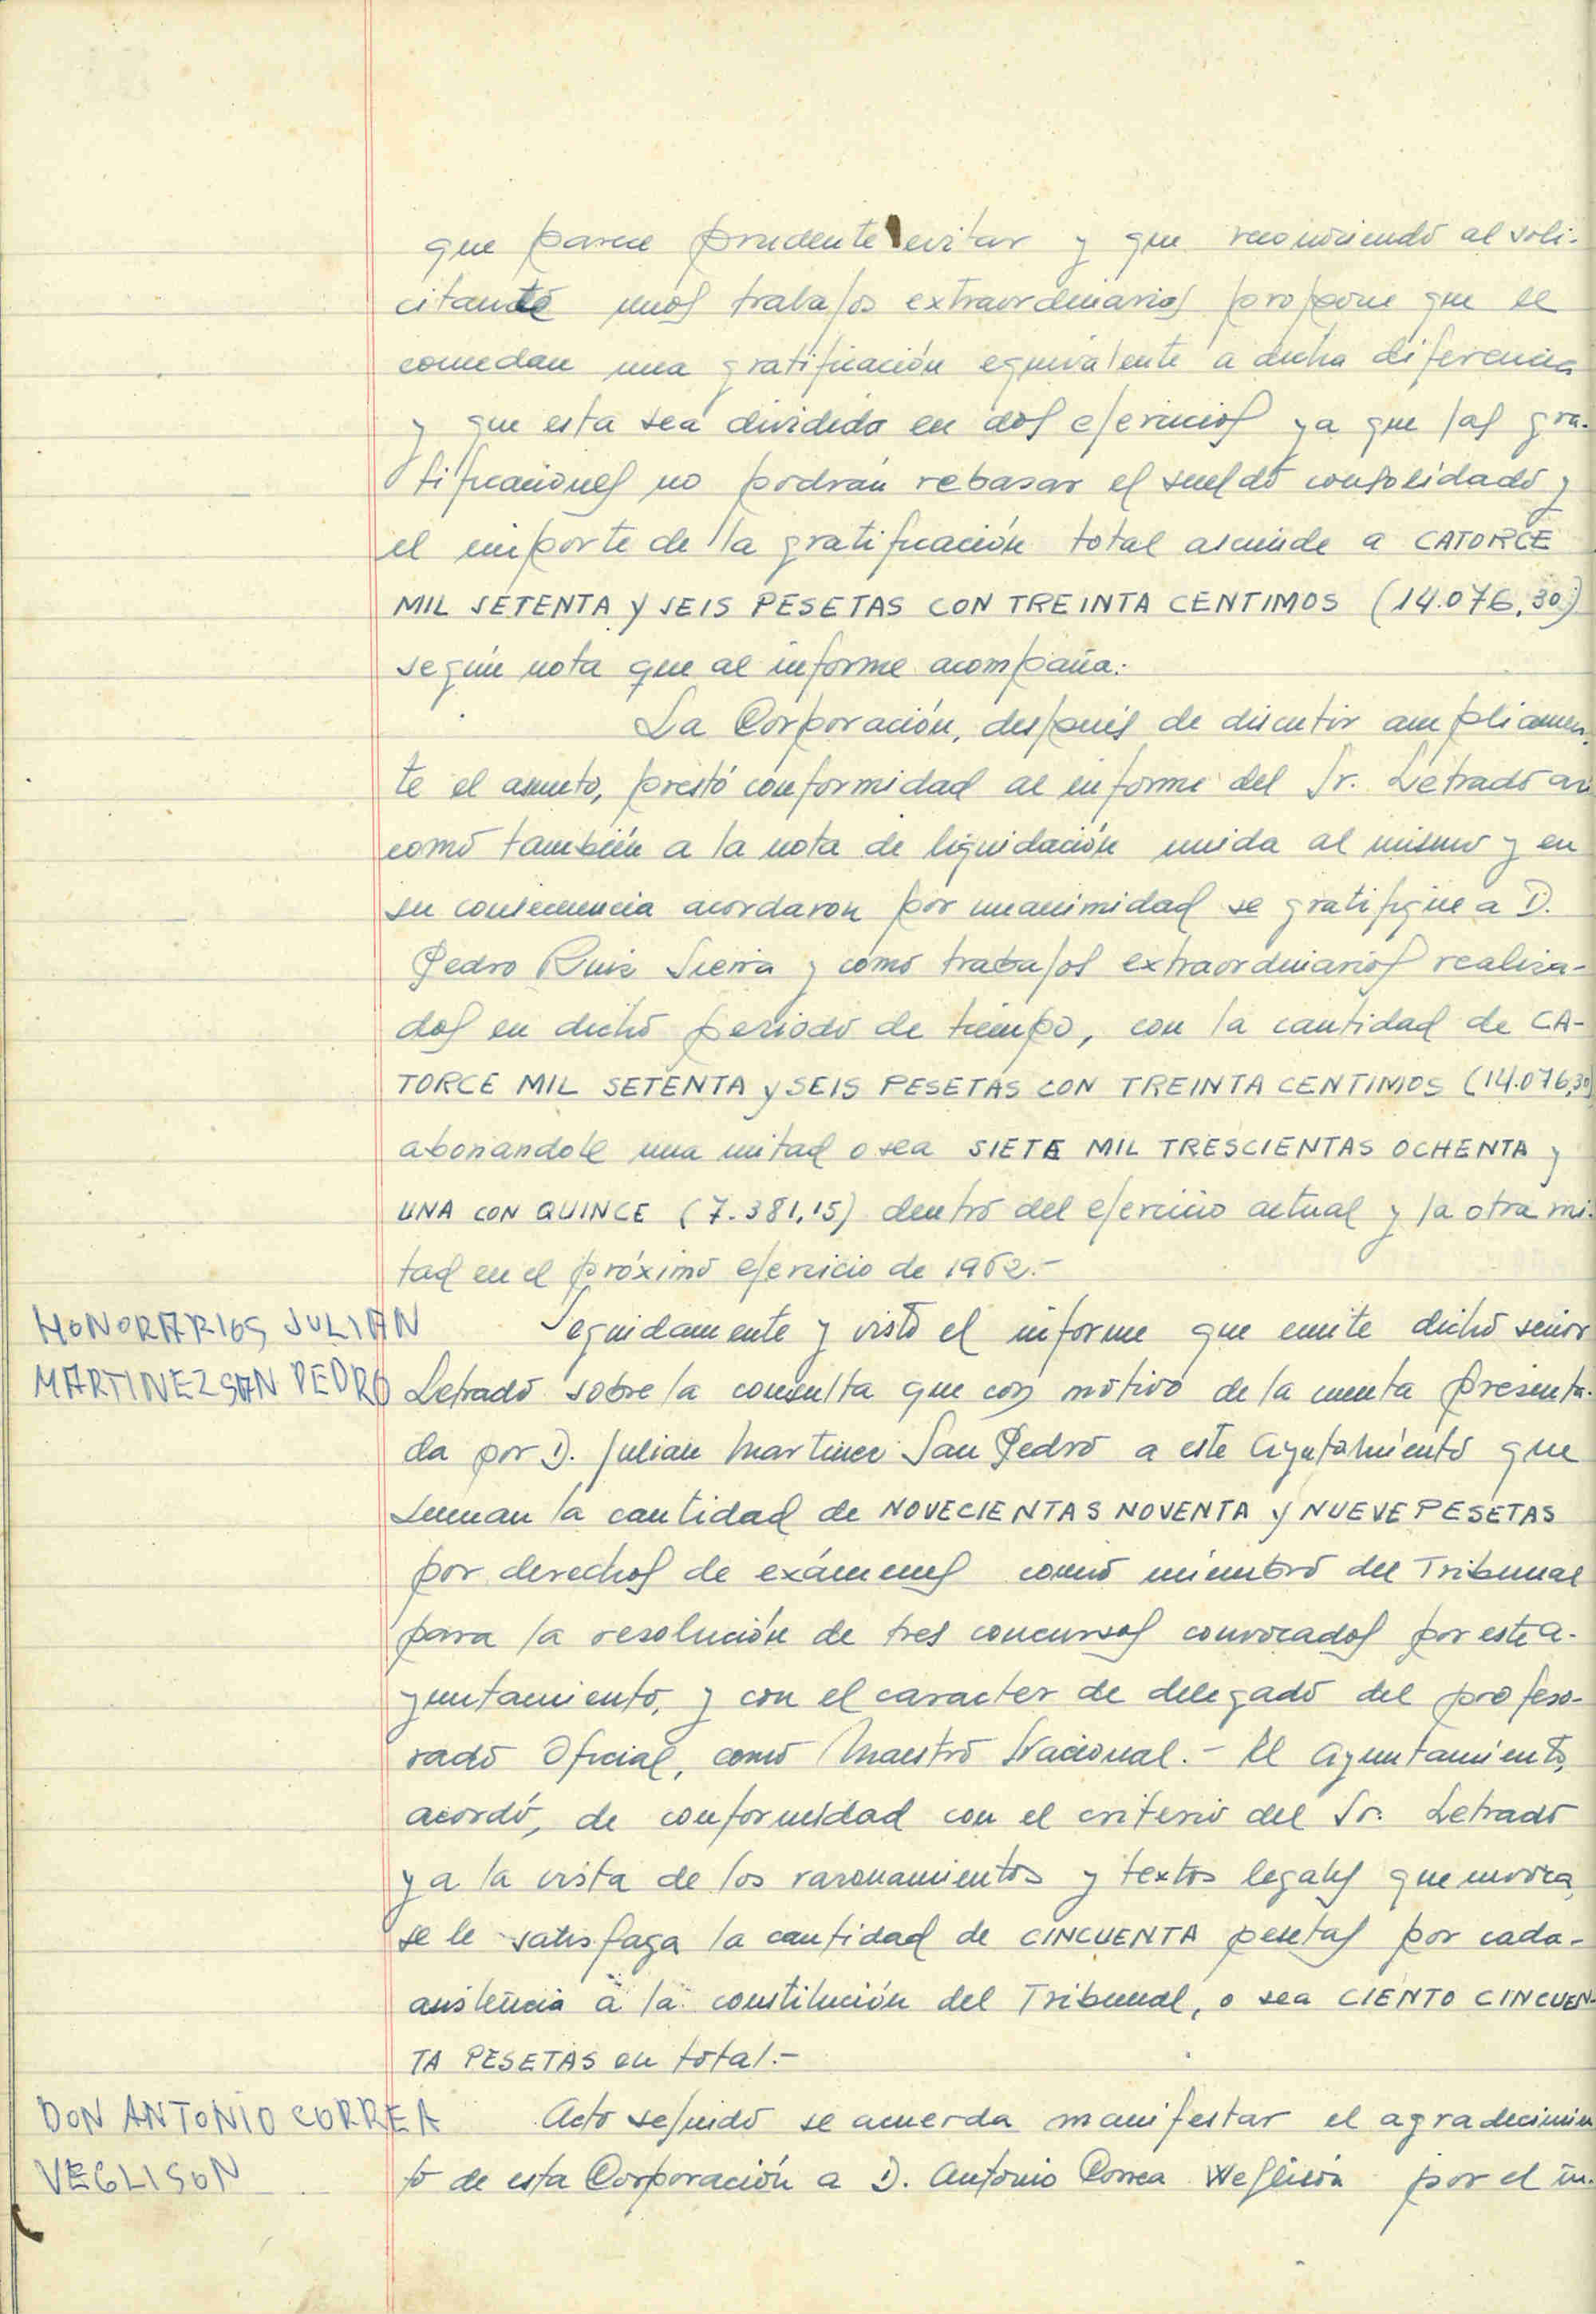 que parece prudente evitar y que reconociendo al soli-
citante unos trabajos extraordinarios propone que se
concedan una gratificación equivalente a dicha diferencia
y que esta sea dividida en dos ejercicios ya que las gra-
tificaciones no podrán rebasar el sueldo consolidado y
el importe de la gratificación total asciende a CATORCE
MIL SETENTA y SEIS PESETAS CON TREINTA CENTIMOS (14.076,30)
según nota que al informe acompaña.
La Corporación, después de discutir ampliamen-
te el asunto, prestó conformidad al informe del Sr. Letrado asi
como también a la nota de liquidación unida al mismo y en
su consecuencia acordaron por unanimidad se gratifique a D.
Pedro Ruiz Sierra y como trabajos extraordinarios realiza-
dos en dicho periodo de tiempo, con la cantidad de CA-
TORCE MIL SETENTA y SEIS PESETAS CON TREINTA CENTIMOS (14.076,30)
abonandole una mitad o sea SIETE MIL TRESCIENTAS OCHENTA y
UNA CON QUINCE (7.381,15) dentro del ejercicio actual y la otra mi-
tad en el próximo ejercicio de 1962.-
HONORARIOS JULIAN
MARTINEZ SAN PEDRO
Seguidamente y visto el informe que emite dicho señor
Letrado sobre la consulta que con motivo de la cuenta presenta-
da por D. Julian Martinez San Pedro a este Ayuntamiento que
suman la cantidad de NOVECIENTAS NOVENTA y NUEVE PESETAS
por derechos de exámenes como miembro del Tribunal
para la resolución de tres concursos convocados por este A-
yuntamiento, y con el caracter de delegado del profeso-
rado Oficial, como Maestro Nacional.- El Ayuntamiento,
acordó, de conformidad con el criterio del Sr. Letrado
y a la vista de los razonamientos y textos legales que invoca,
se le satisfaga la cantidad de CINCUENTA pesetas por cada-
asistencia a la constitución del Tribunal, o sea CIENTO CINCUEN-
TA PESETAS en total.-
DON ANTONIO CORREA
VEGLISON
Acto seguido se acuerda manifestar el agradecimien
to de esta Corporación a D. Antonio Correa Weglison por el in-